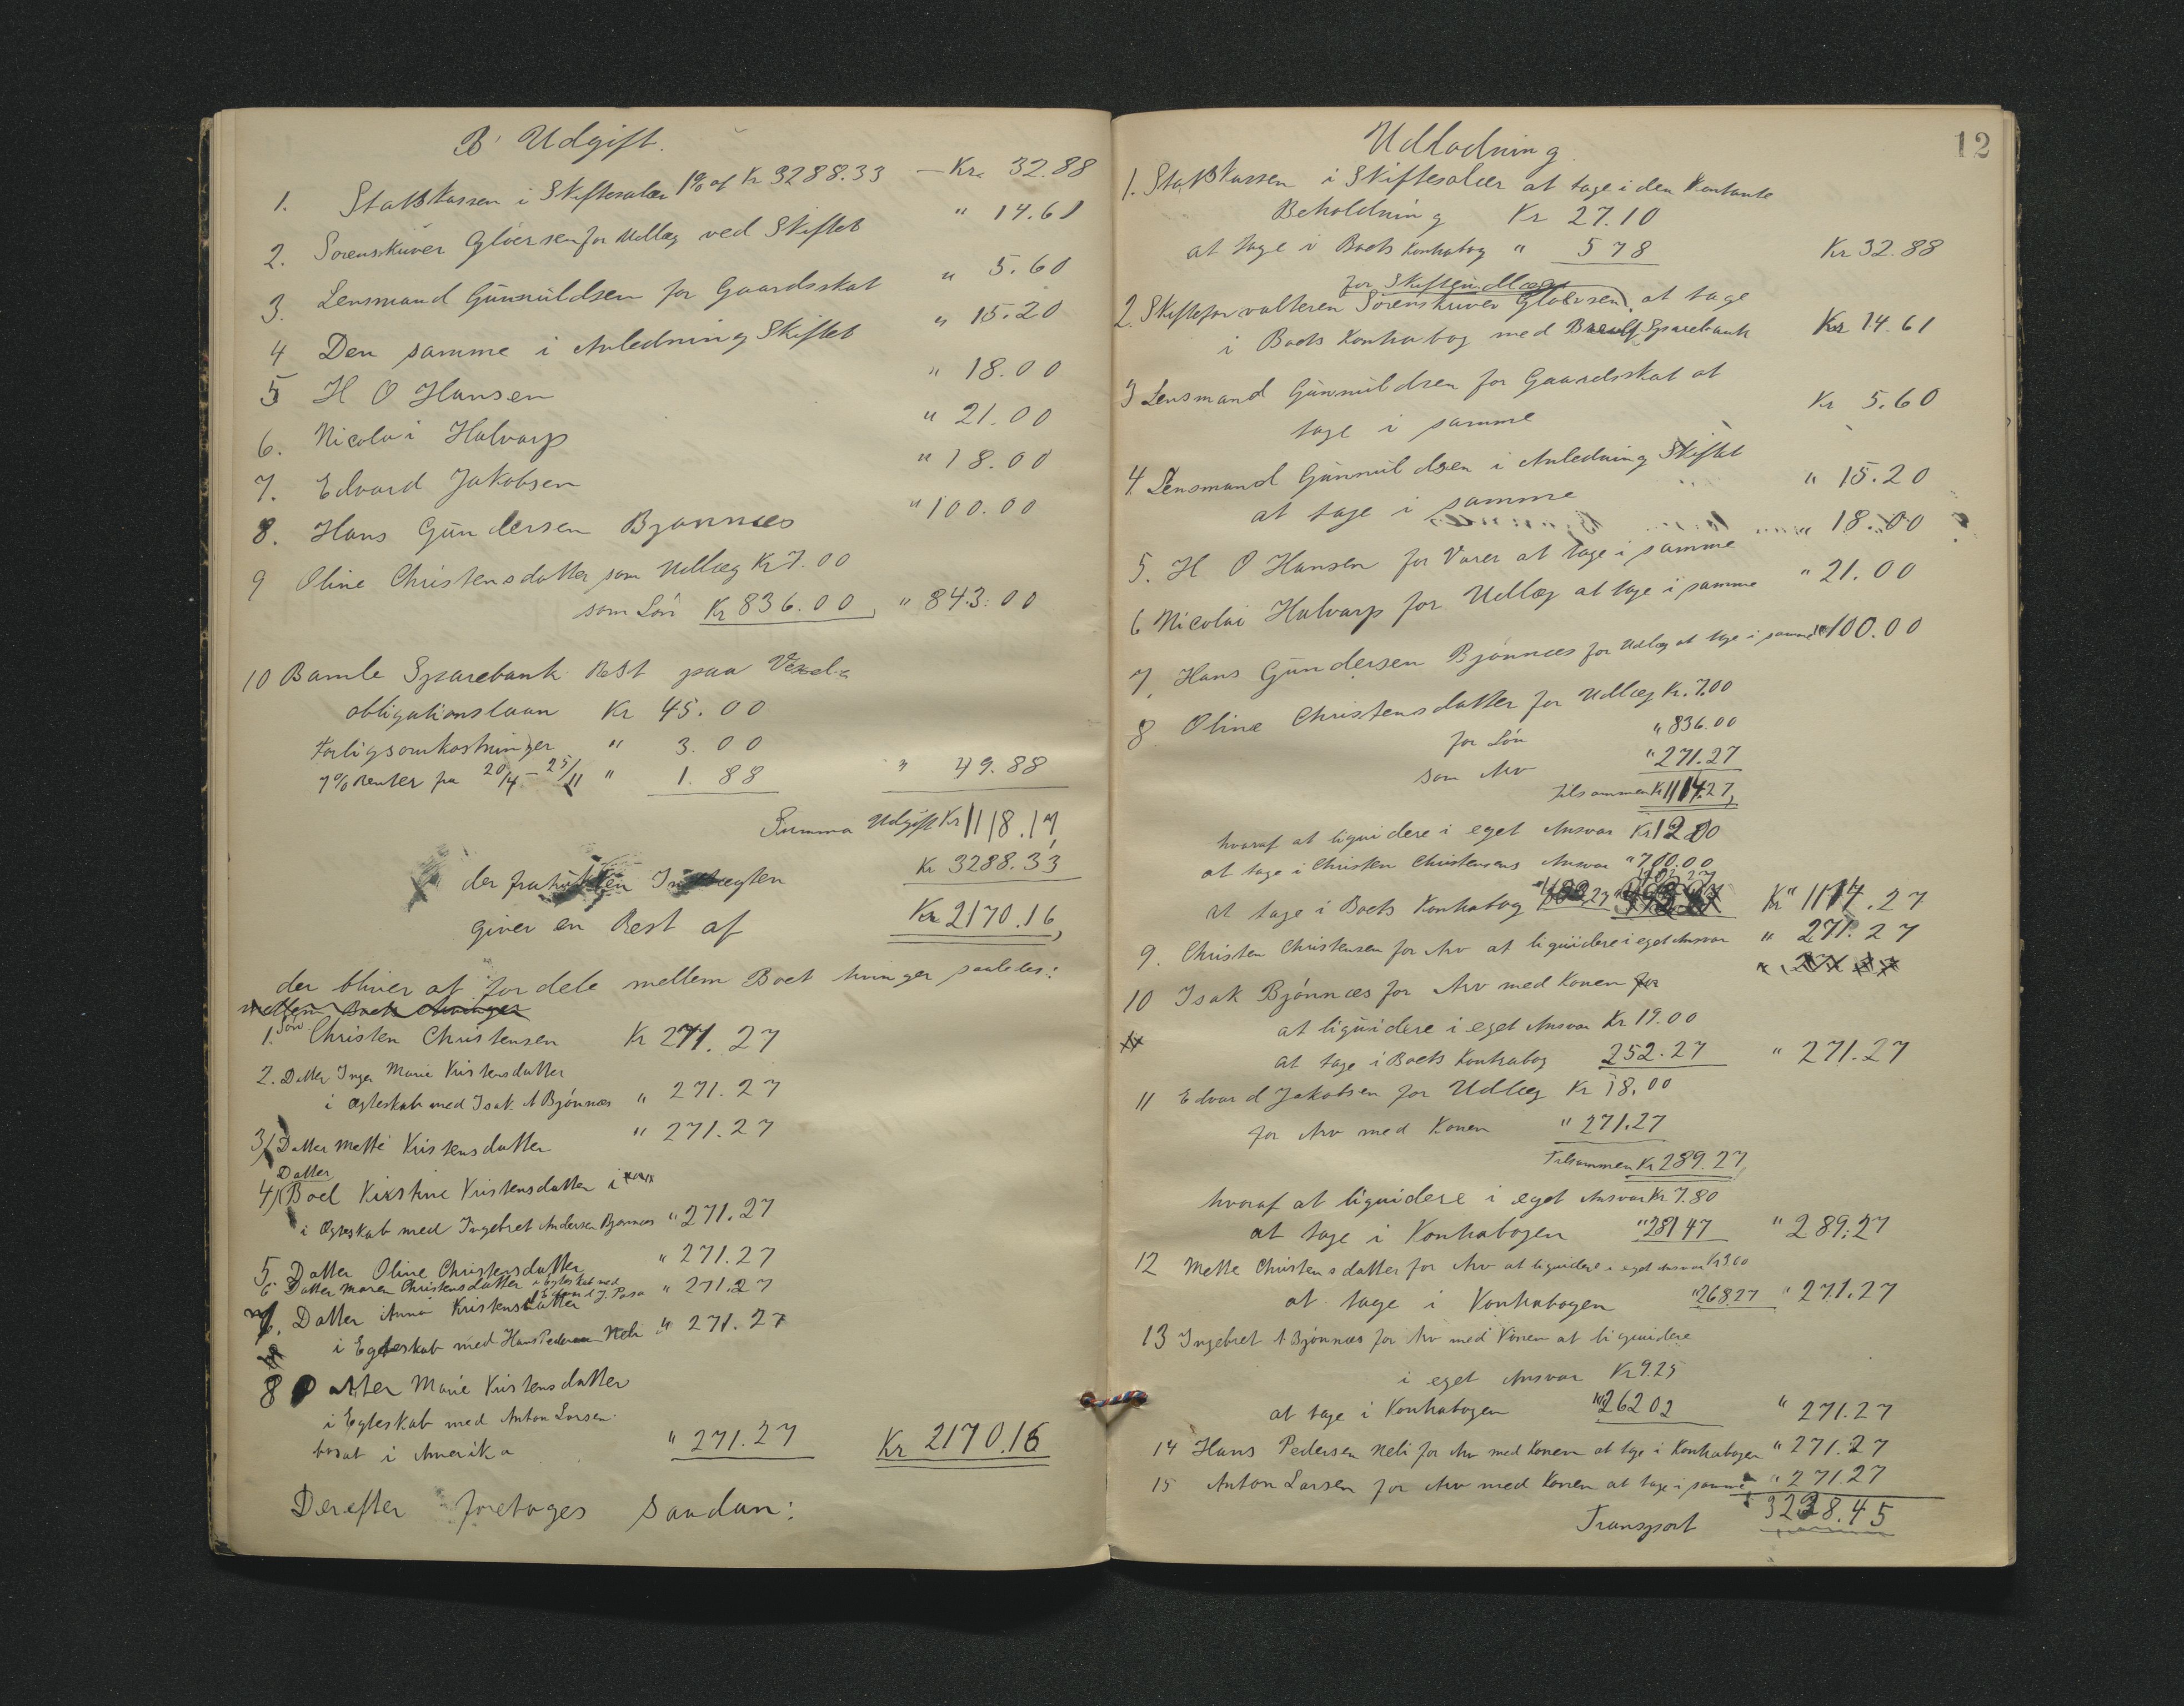 B. Udgift.
1. Statskassen i Skiftesalær 1% af Kr 3288.33 — Kr. 32.88
2. Sorenskriver Gløersen for Udlæg ved Skiftet " 14.61
3. Lensmand Gunnuldsen for Gaardsskat " 5.60
4 Den samme i Anledning Skiftet " 15.20
5 H O Hansen " 18.00
6. Nicolai Halvarp " 21.00
7. Edvard Jakobsen " 18.00
8. Hans Gundersen Bjønnæs " 100.00
9 Oline Christensdatter som Udlæg Kr 7.00
som Løn Kr 836.00, " 843.00
10 Bamle Sparebank Rest paa Vexel-
obligationslaan Kr 45.00
Forligsomkostninger " 3.00
7% Renter fra 20/4 - 25/11 " 1.88 " 49.88
Summa Udgift Kr 1118.17,
der fratrukken Indtægten Kr 3288.33
giver en Rest af Kr 2170.16,
der bliver at fordele mellem Boet hvinger saaledes:
mellem Boets Arvinger
1. Søn Christen Christensen Kr 271.27
2. Datter Inger Marie Kristensdatter
i Ægteskab med Isak A Bjønnæs " 271.27
3/ Datter Mette Kristensdatter " 271.27
Datter
4/ Boel Kirstine Kristensdatter i
i Ægteskab med Ingebret Andersen Bjønnæs " 271.27
5 Datter Oline Christensdatter " 271.27
6 Datter Maren Christensdatter i Egteskab med
Edvard J. Pasa " 271.27
7. Datter Anna Kristensdatter
i Egteskab med Hans Pedersen Neli " 271.27
8 Datter Marie Kristensdatter
i Egteskab med Anton Larsen
bosat i Amerika " 271.27 Kr 2170.16
Derefter foretoges saadan:
12
Udlodning
1. Statskassen i Skiftesalær at tage i den Kontante
Beholdning Kr 27.10
at tage i Boets Kontrabog " 578 Kr 32.88
for Skifteudlæg
2. Skifteforvalteren Sorenskriver Gløersen, at tage
i Boets Kontrabog med Sparebank Kr 14.61
3 Lensmand Gunnuldsen for Gaardsskat at
tage i samme Kr 5.60
4. Lensmand Gunnuldsen i Anledning Skiftet
at tage i samme " 15.20
5. H O Hansen for Varer at tage i samme " 18.00
6 Nicolai Halvarp for Udlæg at tage i samme " 21.00
7. Hans Gundersen Bjønnæs for Udlæg at tage i samme " 100.00
8 Oline Christensdatter for Udlæg Kr. 7.00
for Løn " 836.00
som Arv " 271.27
tilsammen Kr 1114.27,
hvoraf at liquidere i eget Ansvar Kr 12.00
at tage i Christen Christensens Ansvar " 700.00
at tage i Boets Kontrabog 402.27 Kr " 1114.27
9. Christen Christensen for Arv at liquidere i eget Ansvar " 271.27
10 Isak Bjønnæs for Arv med Konen for
at liquidere i eget Ansvar Kr 19.00
at tage i Boets Kontrabog 252.27 " 271.27
11 Edvard Jakobsen for Udlæg Kr 18.00
for Arv med Konen " 271.27
Tilsammen Kr 289.27,
hvoraf at liquidere i eget Ansvar Kr 7.80
at tage i Kontrabogen " 281 47 " 289.27
12 Mette Christensdatter for Arv at liquidere i eget Ansvar Kr 3.00
at tage i Kontrabogen " 268.27 " 271.27
13 Ingebret A Bjønnæs for Arv med Konen at liquidere
i eget Ansvar Kr 9.25
at tage i Kontrabogen " 262 02 " 271.27
14 Hans Pedersen Neli for Arv med Konen at tage i Kontrabogen " 271.27
15 Anton Larsen for Arv med Konen at tage i samme " 271.27
Transport 3238.45